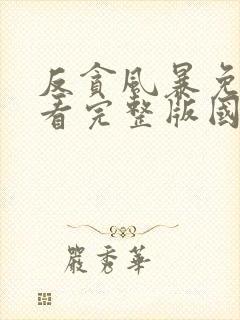 反貪風暴免
看完整版國
嚴秀華